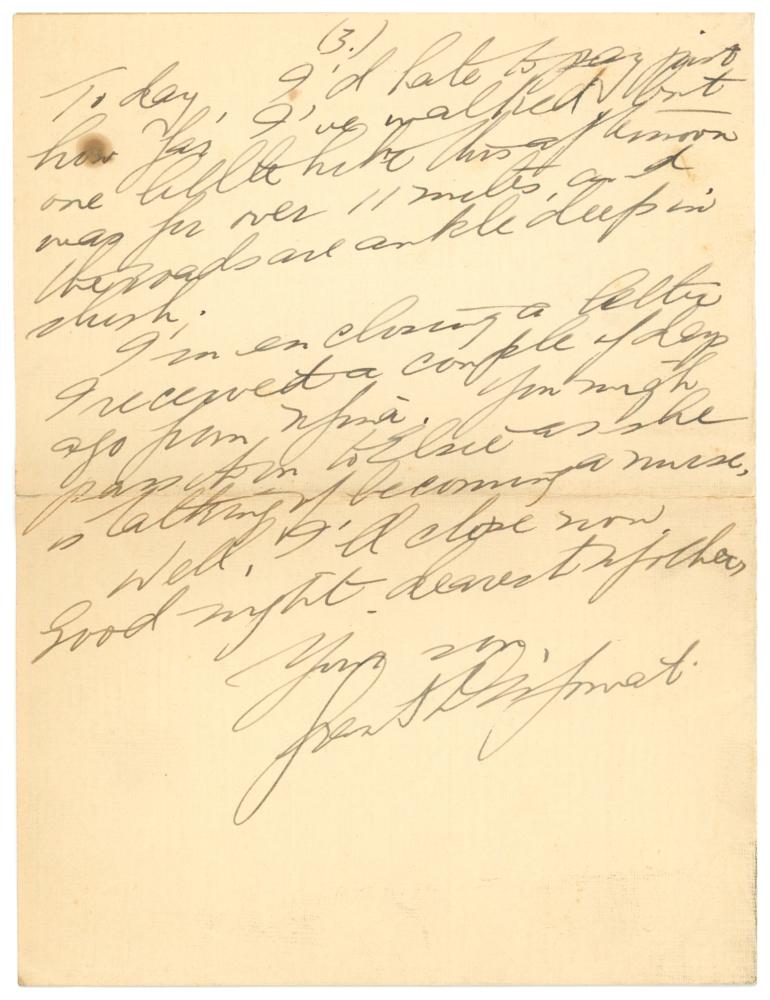 (3.)
To day, I'd hate to say just
how far I've walked, but
one little hike this afternoon
was for over 11 miles, and
the roads are ankle deep in
slush.
I'm enclosing a letter
I received a couple of days
ago from You might
pass it on to Elsie as she
is talking of becoming a nurse.
Well, I'll close now.
Good night dearest Mother,
Your son,